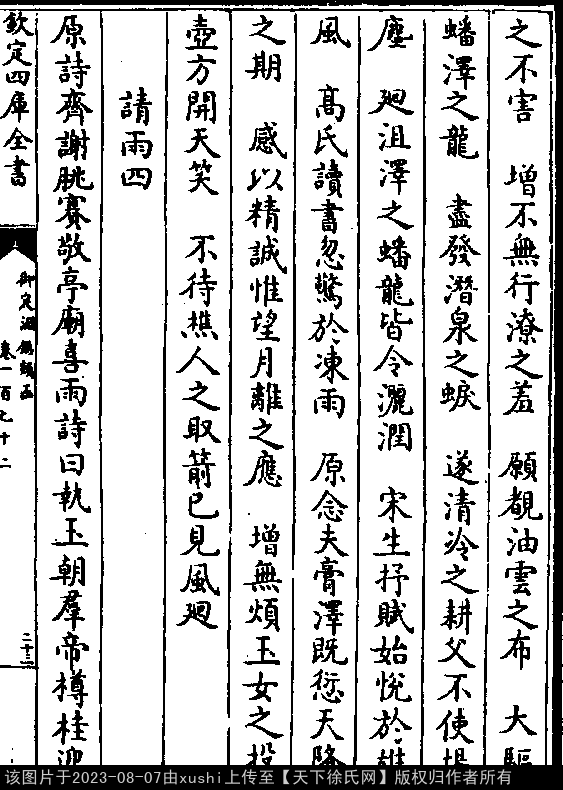 之不害　增不無行潦之羞　願覩油雲之布　大驅
蟠澤之龍　盡發潛泉之蜧　遂清泠之耕父不使揚
塵　廻沮澤之蟠龍皆令灑潤　宋生抒賦始悅於雄
風　高氏讀書忽驚於凍雨　原念夫膏澤既愆天降
之期　感以精誠惟望月離之應　增無煩玉女之投
壺方開天笑　不待樵人之取箭已見風廻
請雨四
原詩齊謝朓賽敬亭廟喜雨詩曰執玉朝羣帝樽桂迎
欽定四庫全書
御定淵鑑類函
卷一百七十二
二十三
该图片于2023-08-07由xushi上传至【天下徐氏网】版权归作者所有